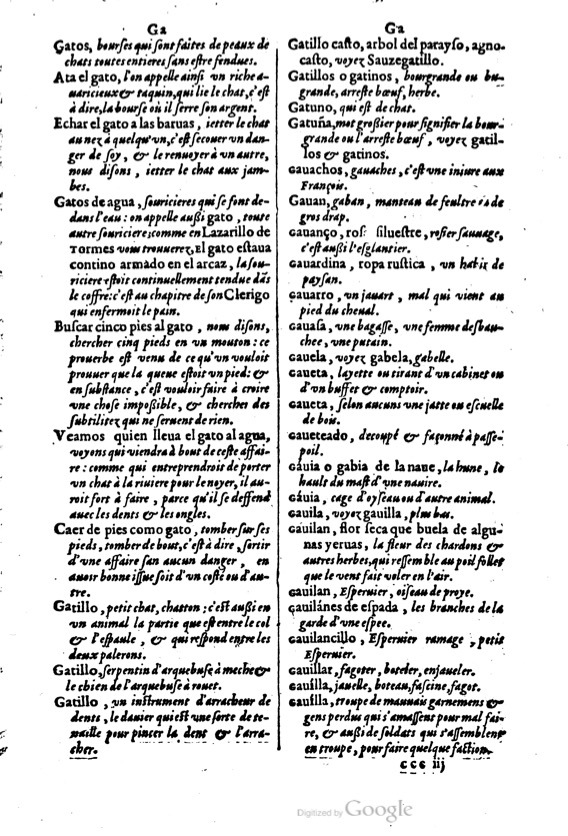 Ga
Gatos, bourses qui sont faites de peaux de
chats toutes entieres sans estre fendues.
Ata el gato, l'on appelle ainsi vn riche a-
uaricieux & taquin, qui lie le chat, c'est
à dire, la bourse où il serre son argent.
Echar el gato a las baruas, ietter le chat
au nez à quelqu'vn, c'est secouer vn dan-
ger de soy, & le renuoyer à vn autre,
nous disons, ietter le chat aux jam-
bes.
Gatos de agua, souricieres qui se font de-
dans l'eau: on appelle außi gato, toute
autre souriciere; comme en Lazarillo de
Tormes vous trouuerez, El gato estaua
contino armado en el arcaz, la sou-
riciere estoit continuellement tendue dãs
le coffre: c'est au chapitre de son Clerigo
qui enfermoit le pain.
Buscar cinco pies al gato, nous disons,
chercher cinq pieds en vn mouton: ce
prouerbe est venu de ce qu'vn vouloit
prouuer que la queue estoit vn pied: &
en substance, c'est vouloir faire à croire
vne chose impoßible, & chercher des
subtilitez qui ne seruent de rien.
Veamos quien lleua el gato al agua,
voyons qui viendra à bout de ceste affai-
re: comme qui entreprendroit de porter
vn chat à la riuiere pour le noyer, il au-
roit fort à faire, parce qu'il se deffend
auec les dents & les ongles.
Caer de pies como gato, tomber sur ses
pieds, tomber de bout, c'est à dire, sortir
d'vne affaire san aucun danger, en
auoir bonne issue soit d'un costé ou d'au-
tre.
Gatillo, petit chat, chatton: c'est außi en
vn animal la partie que est entre le col
& l'espaule, & qui respond entre les
deux palerons.
Gatillo, serpentin d'arquebuse à meche &
le chien de l'arquebuse à rouet.
Gatillo, vn instrument d'arracheur de
dents, le dauier qui est vne sorte de te-
naille pour pincer la dent & l'arra-
cher.
Ga
Gatillo casto, arbol del parayso, agno-
casto, voyez Sauzegatillo.
Gatillos o gatinos, bourgrande ou bu-
grande, arreste bœuf, herbe.
Gatuno, qui est de chat.
Gatuña, mot grossier pour signifier la bour-
grande ou l'arreste bœuf, voyez gatil-
los & gatinos.
Gauachos, gauaches, c'est vne iniure aux
François.
Gauan, gaban, manteau de feultre ou de
gros drap.
Gauanço, rosa siluestre, rosier sauuage,
c'est außi l'esglantier.
Gauardina, ropa rustica, vn habit de
paysan.
Gauarro, vn jauart, mal qui vient au
pied du cheual.
Gauasa, vne bagasse, vne femme desbau-
chee, vne putain.
Gauela, voyez gabela, gabelle.
Gaueta, layette ou tirant d'vn cabinet ou
d'vn buffet & comptoir.
Gaueta, selon aucuns vne jatte ou escuelle
de bois.
Gaueteado, decoupé & façonné à passe-
poil.
Gáuia o gabia de la naue, la hune, le
hault du mast d'vne nauire.
Gáuia, cage d'oyseau ou d'autre animal.
Gauila, voyez gauilla, plus bas.
Gauilan, flor seca que buela de algu-
nas yeruas, la fleur des chardons &
autres herbes, qui ressemble au poil follet
que le vent fait voler en l'air.
Gauilan, Esperuier, oiseau de proye.
Gauilánes de espada, les branches de la
garde d'vne espee.
Gauilancillo, Esperuier ramage, petit
Esperuier.
Gauillar, fagoter, boteler, enjaueler.
Gauílla, jauelle, boteau, fascine, fagot.
Gauilla, troupe de mauuais garnemens &
gens perdus qui s'amassent pour mal fai-
re, & außi de soldats qui s'assemblent
en troupe, pour faire quelque faction.
CCC iij
Digitized by Google